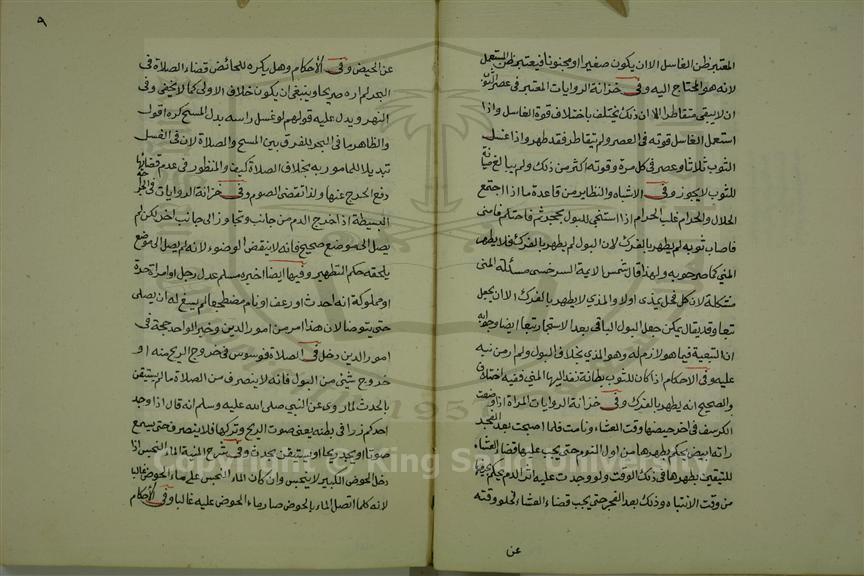 المعتبر ظن الغاسل الا ان يكون صغيرا او مجنونا فيعتبر ظن المستعمل
لانه هو المحتاج اليه وفي خزانة الروايات المعتبر في عصر الثوب
ان لا يبقى متقاطرا الا ان ذلك يختلف باختلاف قوة الغاسل واذا
استعمل الغاسل قوته في العصر ولم يتقاطر فقد طهر واذا غسل
الثوب ثلاثا وعصر في كل مرة وقوته اكثر من ذلك ولم يبالغ صيانة
للثوب لا يجوز وفي الاشباه والنظاير من قاعدة ما اذا اجتمع
الحلال والحرام غلب الحرام اذا استنجى للبول بحجر ثم احتلم فامنى
فاصاب ثوبه لم يطهر بالفرك لان البول لم يطهر بالفرك فلا يطهر
المني كما صرحو به ولهذا قال شمس الايمة السرخسي مسئلة المني
مشكلة لان كل فحل يمذي اولا والمذي لا يطهر بالفرك الا ان يجعل
تبعا وقد يقال يمكن جعل البول الباقي بعد الاستجمار تبعا ايضا وجوابه
ان التبعية فيما هو لازم له وهو المذي بخلاف البول ولم ار من نبه
عليه وفي الاحكام اذا كان للثوب بطانة نفذ اليها المني وفيه اختلاف
والصحيح انه يطهر بالفرك وفي خزانة الروايات المراة اذا وضعت
الكرسف في اخر حيضها وقت العشاء ونامت فلما اصبحت بعد الفجر
راته ابيض يحكم بطهرها من اول النوم حتى يجب عليها قضا العشاء
للتيقين بطهرها في ذلك الوقت ولو وجدت عليه اثر الدم يحكم
من وقت الانتباه وذلك بعد الفجر حتى يجب قضاء العشاء لخلو وقته
عن
٩
عن الحيض وفي الأحكام وهل يكره للحائض قضاء الصلاة في
البحر لم اره صريحا وينبغي ان يكون خلاف الاولى كما لا يخفى وفي
النهر ويدل عليه قولهم لو غسل راسه بدل المسح كره اقول
والظاهر ما في البحر للفرق بين المسح والصلاة لان في الغسل
تبديلا للمامور به بخلاف الصلاة كيف والمنظور في عدم قضائها
دفع الحرج عنها ولذا تقضى الصوم وفي خزانة الروايات
البسيطة اذا خرج الدم من جانب وتجاوز الى جانب اخر لكن لم
يصل الى موضع صحيح فانه لا ينقض الوضوء لانه لم يصل الى موضع
يلحقه حكم التطهير وفيها ايضا اخبره مسلم عدل رجل او امراة حرة
او مملوكة انه احدث او رعف او نام مضطجعا لم يسغ له ان يصلي
حتى يتوضا لان هذا امر من امور الدين وخبر الواحد حجة في
امور الدين دخل في الصلاة فوسوس في خروج الريح منه او
خروج شئ من البول فانه لا ينصرف من الصلاة ما لم يستيقن
بالحدث لما روى عن النبي صلى الله عليه وسلم انه قال اذا وجد
احدكم زرا في بطنه يعني صوت الريح وتركها فلا ينصرف حتى يسمع
صوتا او يجد ريحا او يستيقن بحدث وفي شرح المنية الماء النجس اذا
دخل الحوض الكبير لا ينجس وان كان الماء النجس على ماء الحوض غالبا
لانه كلما اتصل الماء بالحوض صار ماء الحوض عليه غالبا وفي الأحكام
Copyright © King Saud University
1957